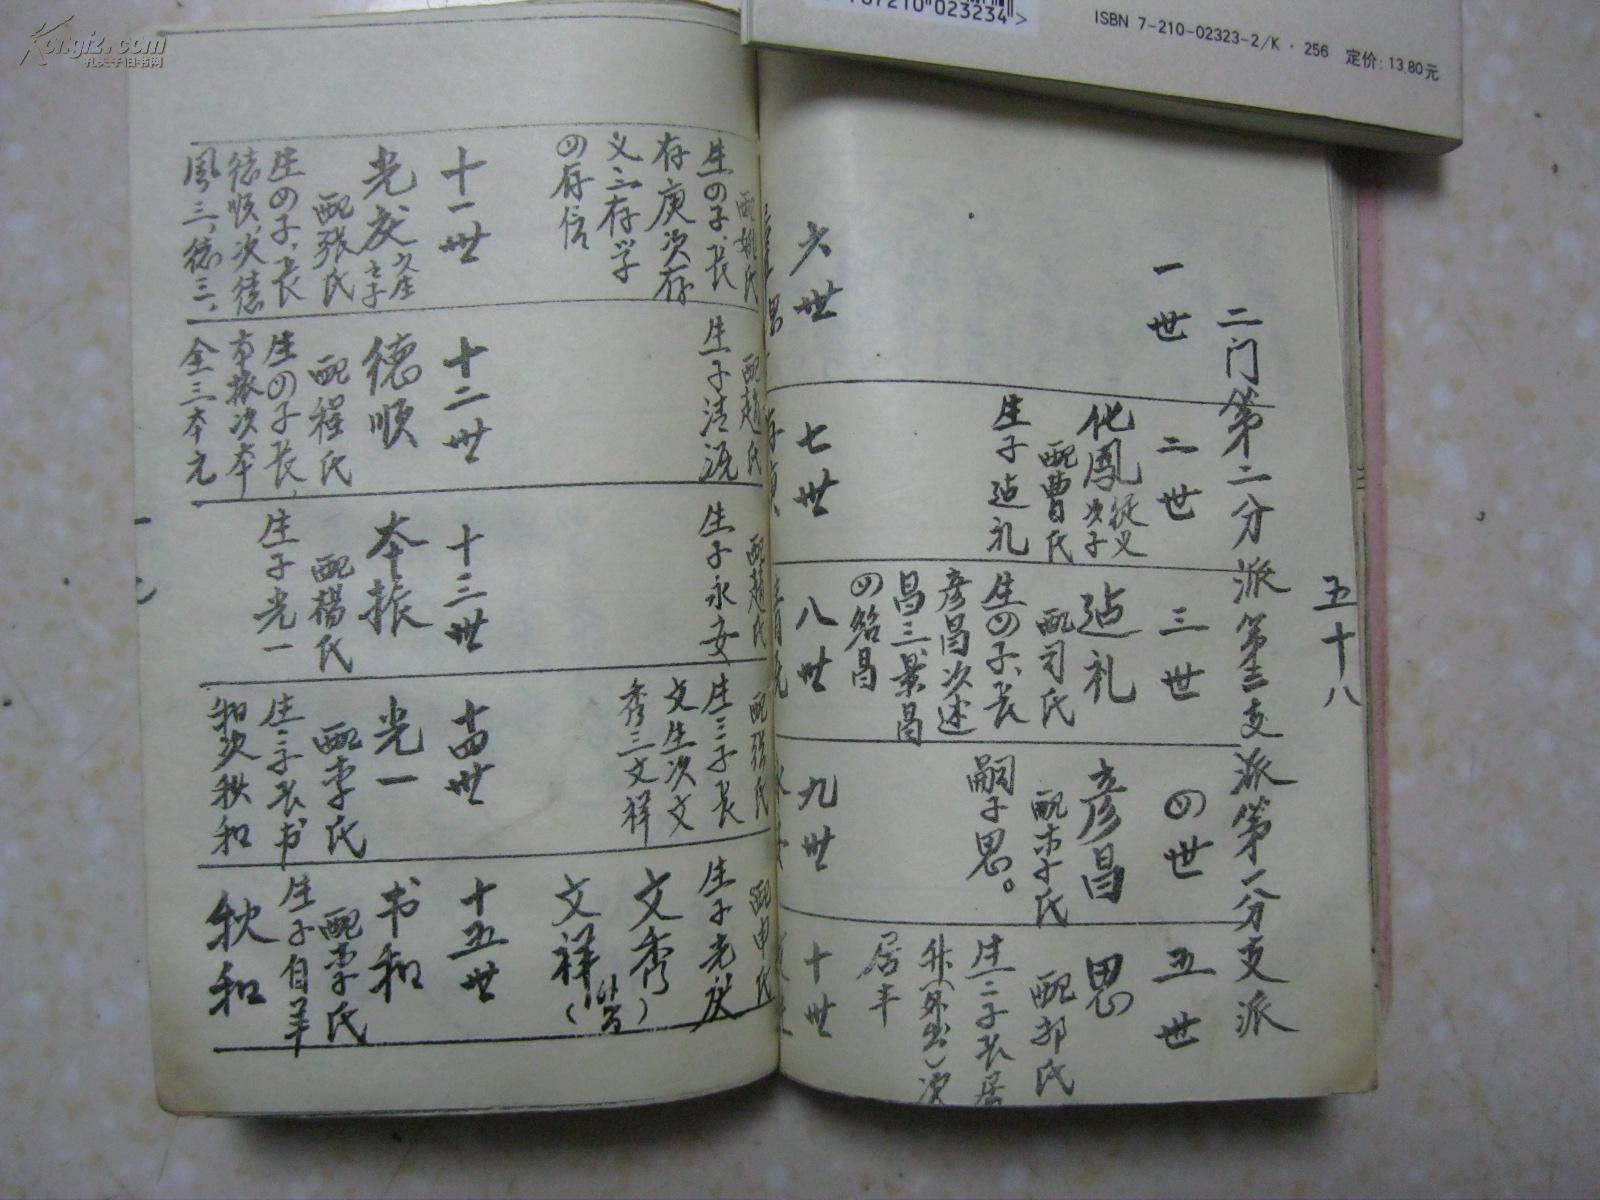 Kongfz.com
孔夫子旧书网
023234>
ISBN 7-210-02323-2/K·256 定价:13.80元
五十八
二门第二分派第三支派第一分支派
一世
二世
化凤
从义
次子
配曹氏
生子
礼
三世
礼
配司氏
生四子、长
彦昌次述
昌三景昌
四绍昌
四世
彦昌
配李氏
嗣子思。
五世
思
配郭氏
生二子长居
升(外出)次
居丰
六世
七世
八世
九世
十世
配姚氏
生四子、长
存庚次存
义三存学
四存信
配赵氏
生子清沅
配赵氏
生子永安
配张氏
生三子长
文生次文
秀三文祥
配申氏
生子光庆
文秀
文祥
十一世
光庆
文生
之子
配张氏
生四子、长
德顺、次德
凤三、德三、
十二世
德顺
配程氏
生四子长、
本振次本
全三本元
十三世
本振
配杨氏
生子光一
十四世
光一
配李氏
生二子长书
和次秋和
十五世
书和
配李氏
生子自羊
秋和